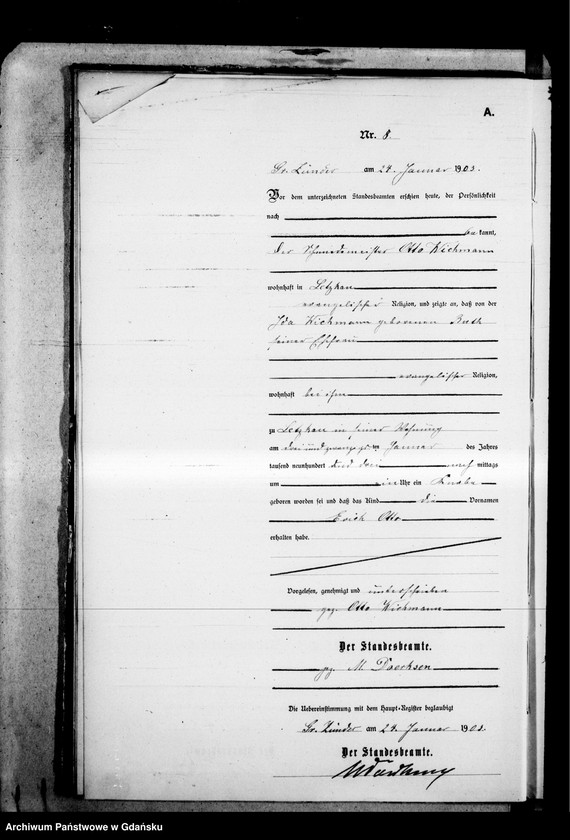 A.
Nr. 8.
Gr. Zünder am 24. Januar 1903.
Vor dem unterzeichneten Standesbeamten erschien heute, der Persönlichkeit
nach
bekannt,
der Schmiedemeister Otto Wichmann
wohnhaft in Letzkau
evangelischer Religion, und zeigte an, daß von der
Ida Wichmann geborenen
seiner Ehefrau
evangelischer Religion,
wohnhaft bei ihm
zu Letzkau in seiner Wohnung
am drei und zwanzigsten Januar des Jahres
tausend neunhundert und drei nachmittags
um ein Uhr ein Knabe
geboren worden sei und daß das Kind die Vornamen
Erich Otto
erhalten habe.
Vorgelesen, genehmigt und unterschrieben
gez. Otto Wichmann
Der Standesbeamte.
gez. M.
Die Uebereinstimmung mit dem Haupt-Register beglaubigt
Gr. Zünder am 24. Januar 1903.
Der Standesbeamte.
Archiwum Państwowe w Gdańsku